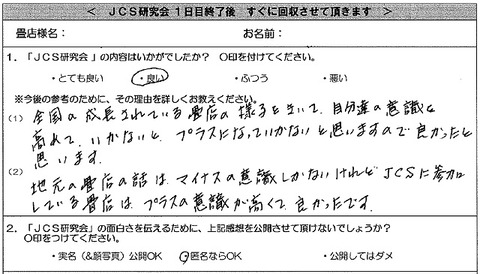 ＜ ＪＣＳ研究会 １日目終了後 すぐに回収させて頂きます ＞
畳店様名： お名前：
１．「ＪＣＳ研究会」の内容はいかがでしたか？ ○印を付けてください。
・とても良い ・良い ・ふつう ・悪い
※今後の参考のために、その理由を詳しくお教えください。
(1) 全国の成長されている畳店の様子をきいて、自分達の意識を
高めて、いかないと、プラスになっていかないと思いますので良かったと
思います。
(2)
地元の畳店の話は、マイナスの意識しかないけれど JCSに参加
している畳店は、プラスの意識が高くて、良かったです。
２．「ＪＣＳ研究会」の面白さを伝えるために、上記感想を公開させて頂けないでしょうか？
○印をつけてください。
・実名（＆顔写真）公開OK ・匿名ならOK ・公開してはダメ